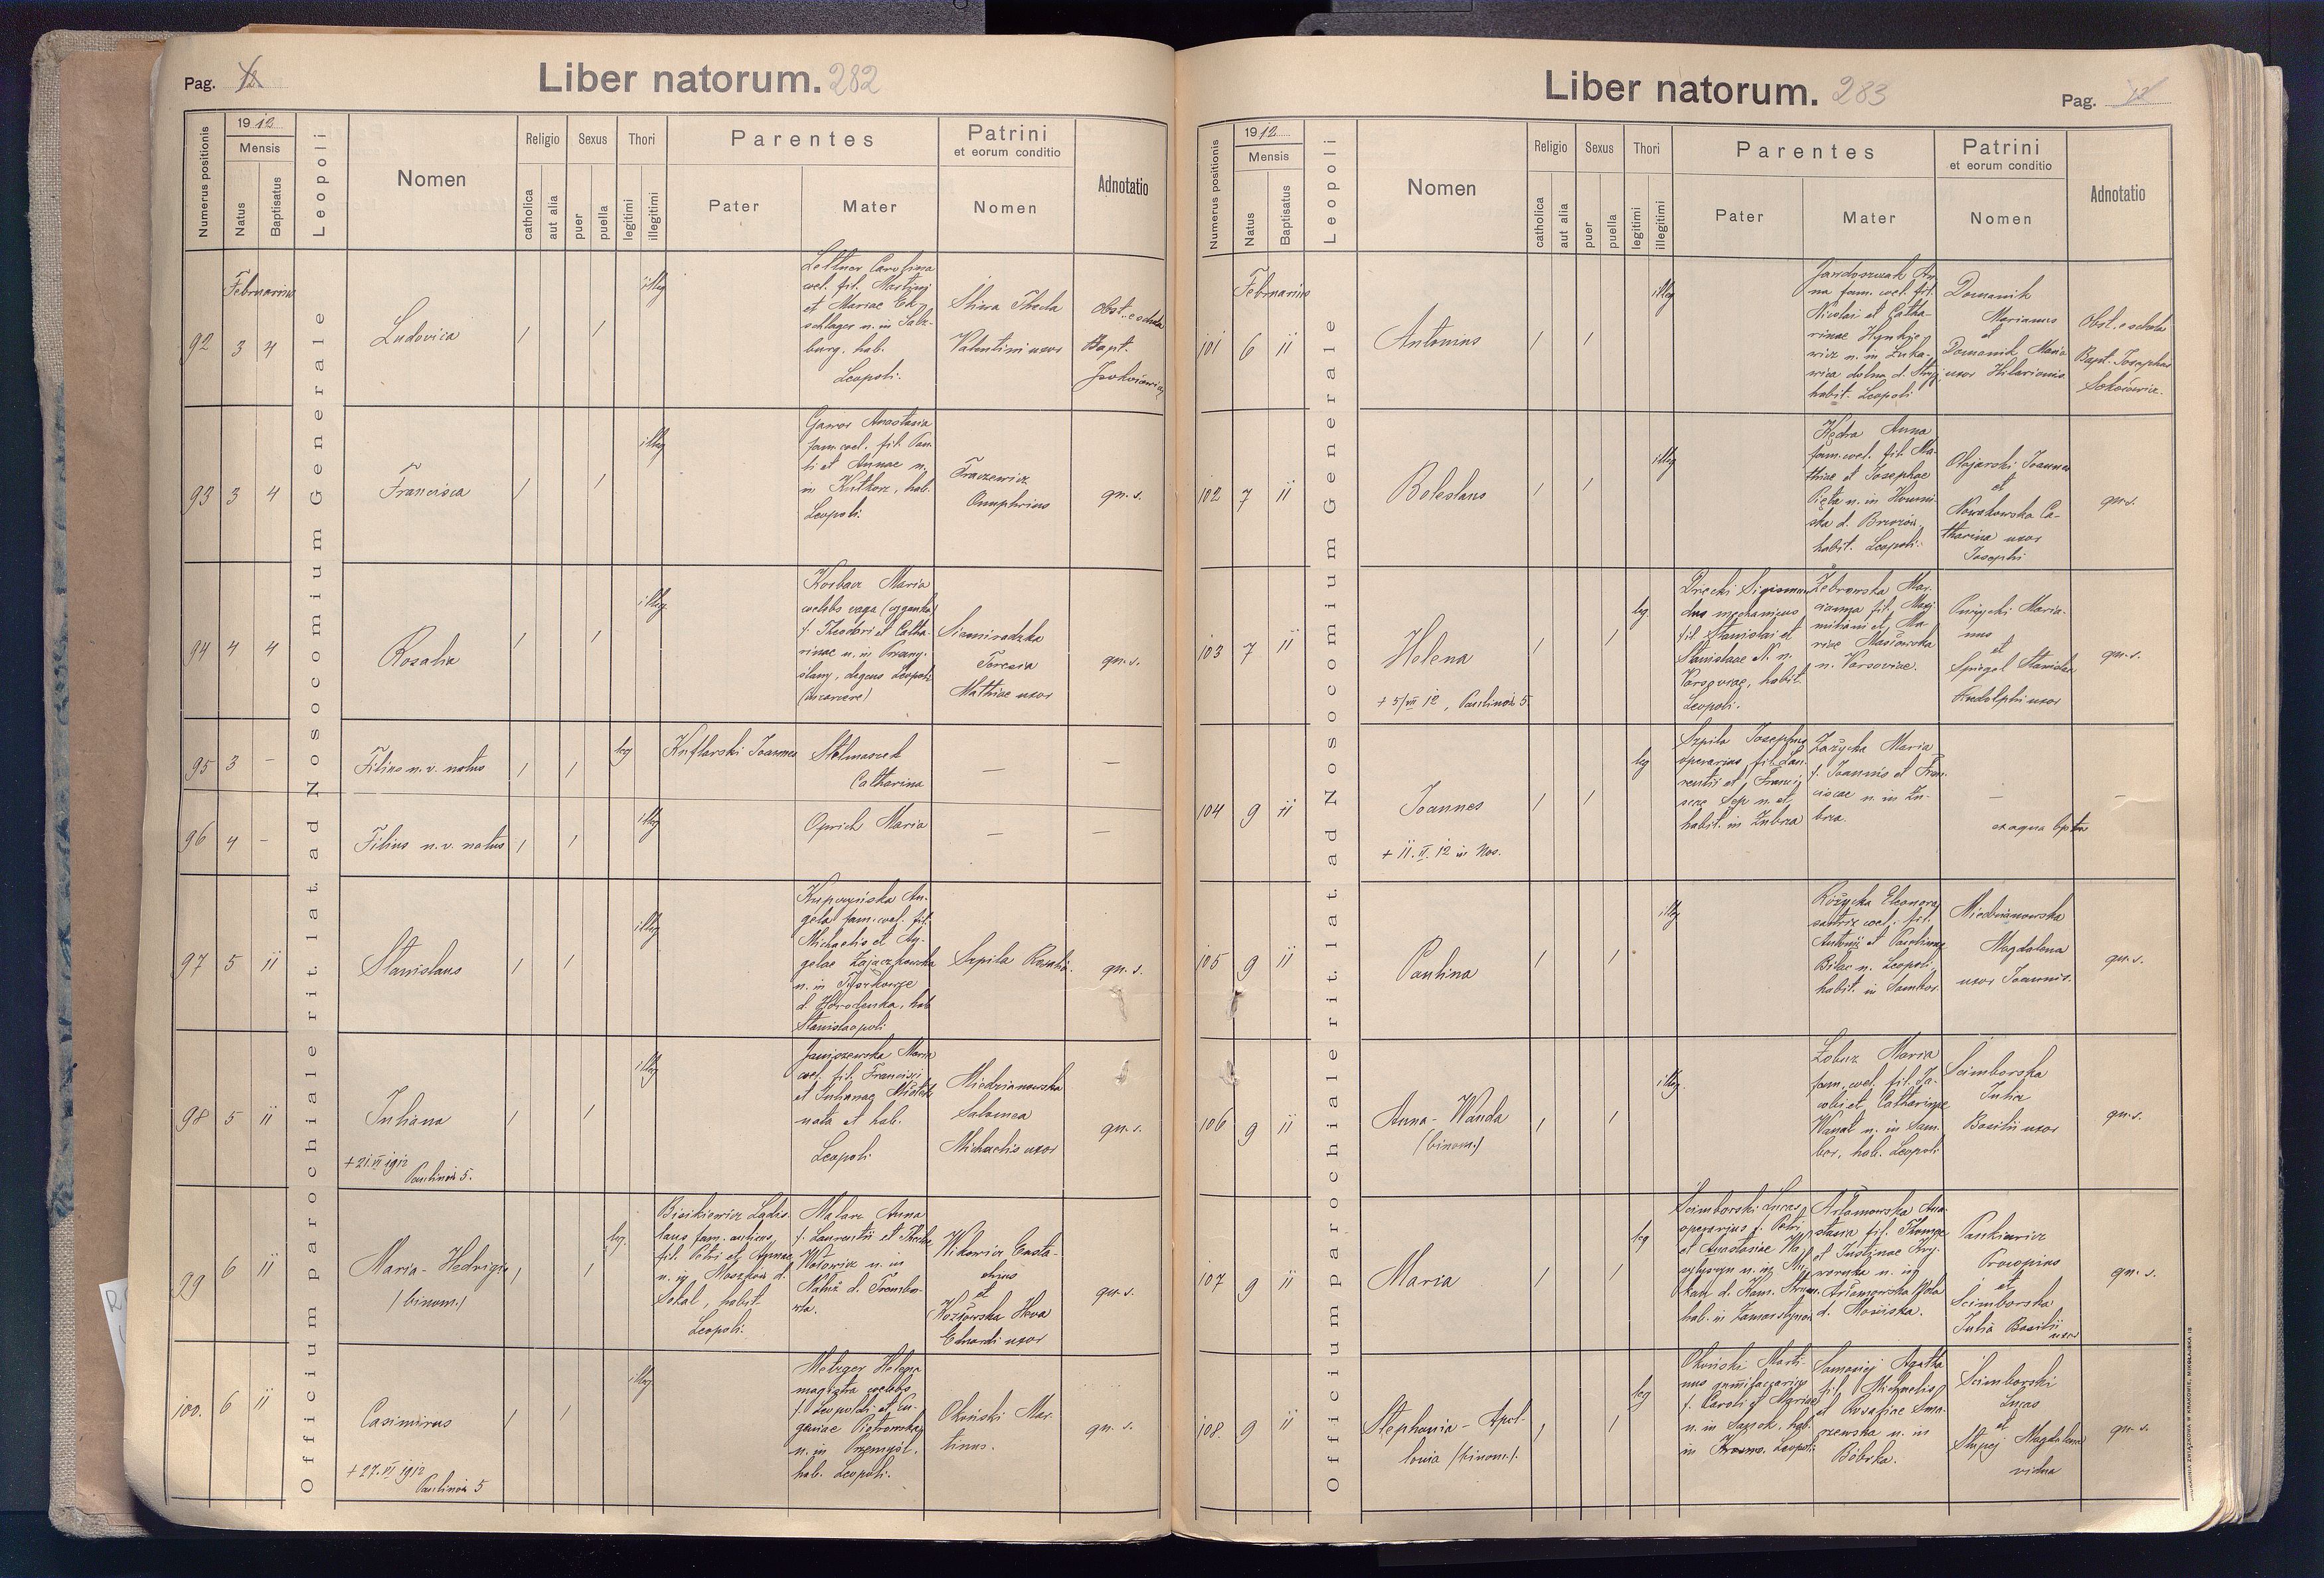 Pag. 12
Liber natorum. 282
Numerus positionis
1912
Mensis
Natus
Baptisatus
Leopoli
Nomen
Religio
catholica
aut alia
Sexus
puer
puella
Thori
legitimi
illegitimi
Parentes
Pater
Mater
Patrini
et eorum conditio
Nomen
Adnotatio
Officium parochiale rit. lat. ad Nosocomium Generale
Februarius
92 3 4
Ludovica
/ /
illeg
Lettner Carolina
coel. fil. Martini
et Mariae
schlager n. in Salz-
burg, hab.
Leopoli.
Thecla
Valentini uxor
Obst. e schola
Bapt.
93 3 4
Francisca
/ /
illeg
Gawor Anastasia
fam. coel. fil. Pau-
li et Annae n.
in Kutkorz, hab.
Leopoli.
Fraczewicz
Onuphrius
qu. s.
94 4 4
Rosalia
/ /
illeg
Maria
coelebs vaga (cyganka)
f. Theodori et Catha-
rinae n. in Przemy-
ślany, degens Leopoli
Siemiradzka
Teresia
Mathiae uxor
qu. s.
95 3 –
Filius n. v. natus
/ /
leg
Kuflarski Joannes
Stelmaszek
Catharina
—
—
96 4 –
Filius n. v. natus
/ /
illeg
Oprich Maria
—
—
97 5 11
Stanislaus
/ /
illeg
Kupczyńska An-
gela fam. coel. fil.
Michaelis et An-
gelae Zajaczkowska
n. in
d. Horodenka, hab.
Stanislaopoli
Szpila Rosalia.
qu. s.
98 5 11
Juliana
+ 21.VI 1912
Paulinów 5.
/ /
illeg
Janiszewska Maria
coel. fil. Francisci
et Julianae
nata et hab.
Leopoli
Miedzianowska
Salomea
Michaelis uxor
qu. s.
99 6 11
Maria - Hedvigis
(binom.)
/ /
leg.
Bisikiewicz Ladis-
laus fam.
fil. Petri et Agnae
n. in Moszków d.
Sokal, habit.
Leopoli.
Malarz Anna
f. Laurentii et Theclae
Wołowicz n. in
Nałuż d. Trembo-
wla.
Wikowicz Eusta-
chius
et
Kozłowska Heva
Eduardi uxor
qu. s.
100. 6 11
Casimirus
+ 27.VI 1912
Paulinów 5
/ /
illeg
Metzger Helena
magistra coelebs
f. Leopoldi et Eu-
geniae Piotrowska
n. in Przemyśl,
hab. Leopoli.
Okoński Mar-
tinus.
qu. s.
Liber natorum. 283
Pag. 12
Numerus positionis
1912
Mensis
Natus
Baptisatus
Leopoli
Nomen
Religio
catholica
aut alia
Sexus
puer
puella
Thori
legitimi
illegitimi
Parentes
Pater
Mater
Patrini
et eorum conditio
Nomen
Adnotatio
Officium parochiale rit. lat. ad Nosocomium Generale
Februarius
101 6 11
Antonius
/ /
illeg
An-
na fam. coel. fil.
Nicolai et Catha-
rinae
n. in Łuka-
wica dolna d. Stryj
habit. Leopoli
Domanik
Marianus
et
Domanik Maria
uxor Hilarionis
Obst. e schola
Bapt. Josephus
Sokołowicz.
102 7 11
Boleslaus
/ /
illeg
Kędra Anna
fam. coel. fil. Ma-
thiae et Josephae
Pięta n. in Humni-
ska d. Brzozów,
habit. Leopoli.
Olajarski Joannes
et
Nowakowska Ca-
tharina uxor
Josephi
qu. s.
103 7 11
Helena
+ 5/VII 12, Paulinów 5.
/ /
leg
Drecki Sigismun-
dus mechanicus
fil. Stanislai et
Stanislaae N. n.
Varsoviae, habit.
Leopoli.
Żebrowska Mar-
cianna fil. Maxi-
miliani et Ma-
riae
n. Varsoviae.
Maria-
nus
et
Spiegel Stanislaa
Rudolphi uxor
qu. s.
104 9 11
Joannes
+ 11. II. 12 in Nos.
/ /
leg
Szpila Josephus
operarius fil. Lau-
rentii et Franci-
scae Sęp n. et
habit. in Zubrza
Załycka Maria
f. Joannis et Fran-
ciscae n. in Zu-
brza.
—
—
ex aqua bpta
105 9 11
Paulina
/ /
illeg
Różycka Eleonora
sartrix coel. fil.
Antonii et Paulinae
Bilac n. Leopoli
habit. in Sambor.
Miedzianowska
Magdalena
uxor Joannis.
qu. s.
106 9 11
Anna - Wanda
(binom.)
/ /
illeg.
Łobuz Maria
fam. coel. fil. Ja-
cobi et Catharinae
Wanat n. in Sam-
bor, hab. Leopoli
Scimborska
Julia
Basilii uxor
qu. s.
107 9 11
Maria
/ /
leg
Scimborski Lucas
operarius f. Petri
et Anastasiae
hab. in Zamarstynów
Artamowska Ana-
stasia fil. Thomae
et Justinae
n. in
Artamowska Wola
d. Mościska.
Pankiewicz
Procopius
et
Scimborska
Julia Basilii
uxor
qu. s.
108. 9 11
Stephania - Apol-
lonia (binom.)
/ /
leg
Okoński Marti-
nus
f. Caroli et Mariae
n. in Sanok, hab.
in Krosno, Leopoli
Samosiej Agatha
fil. Michaelis
et Rosaliae Sma-
rzewska n. in
Bóbrka.
Scimborski
Lucas
et
Magdalena
vidua
qu. s.